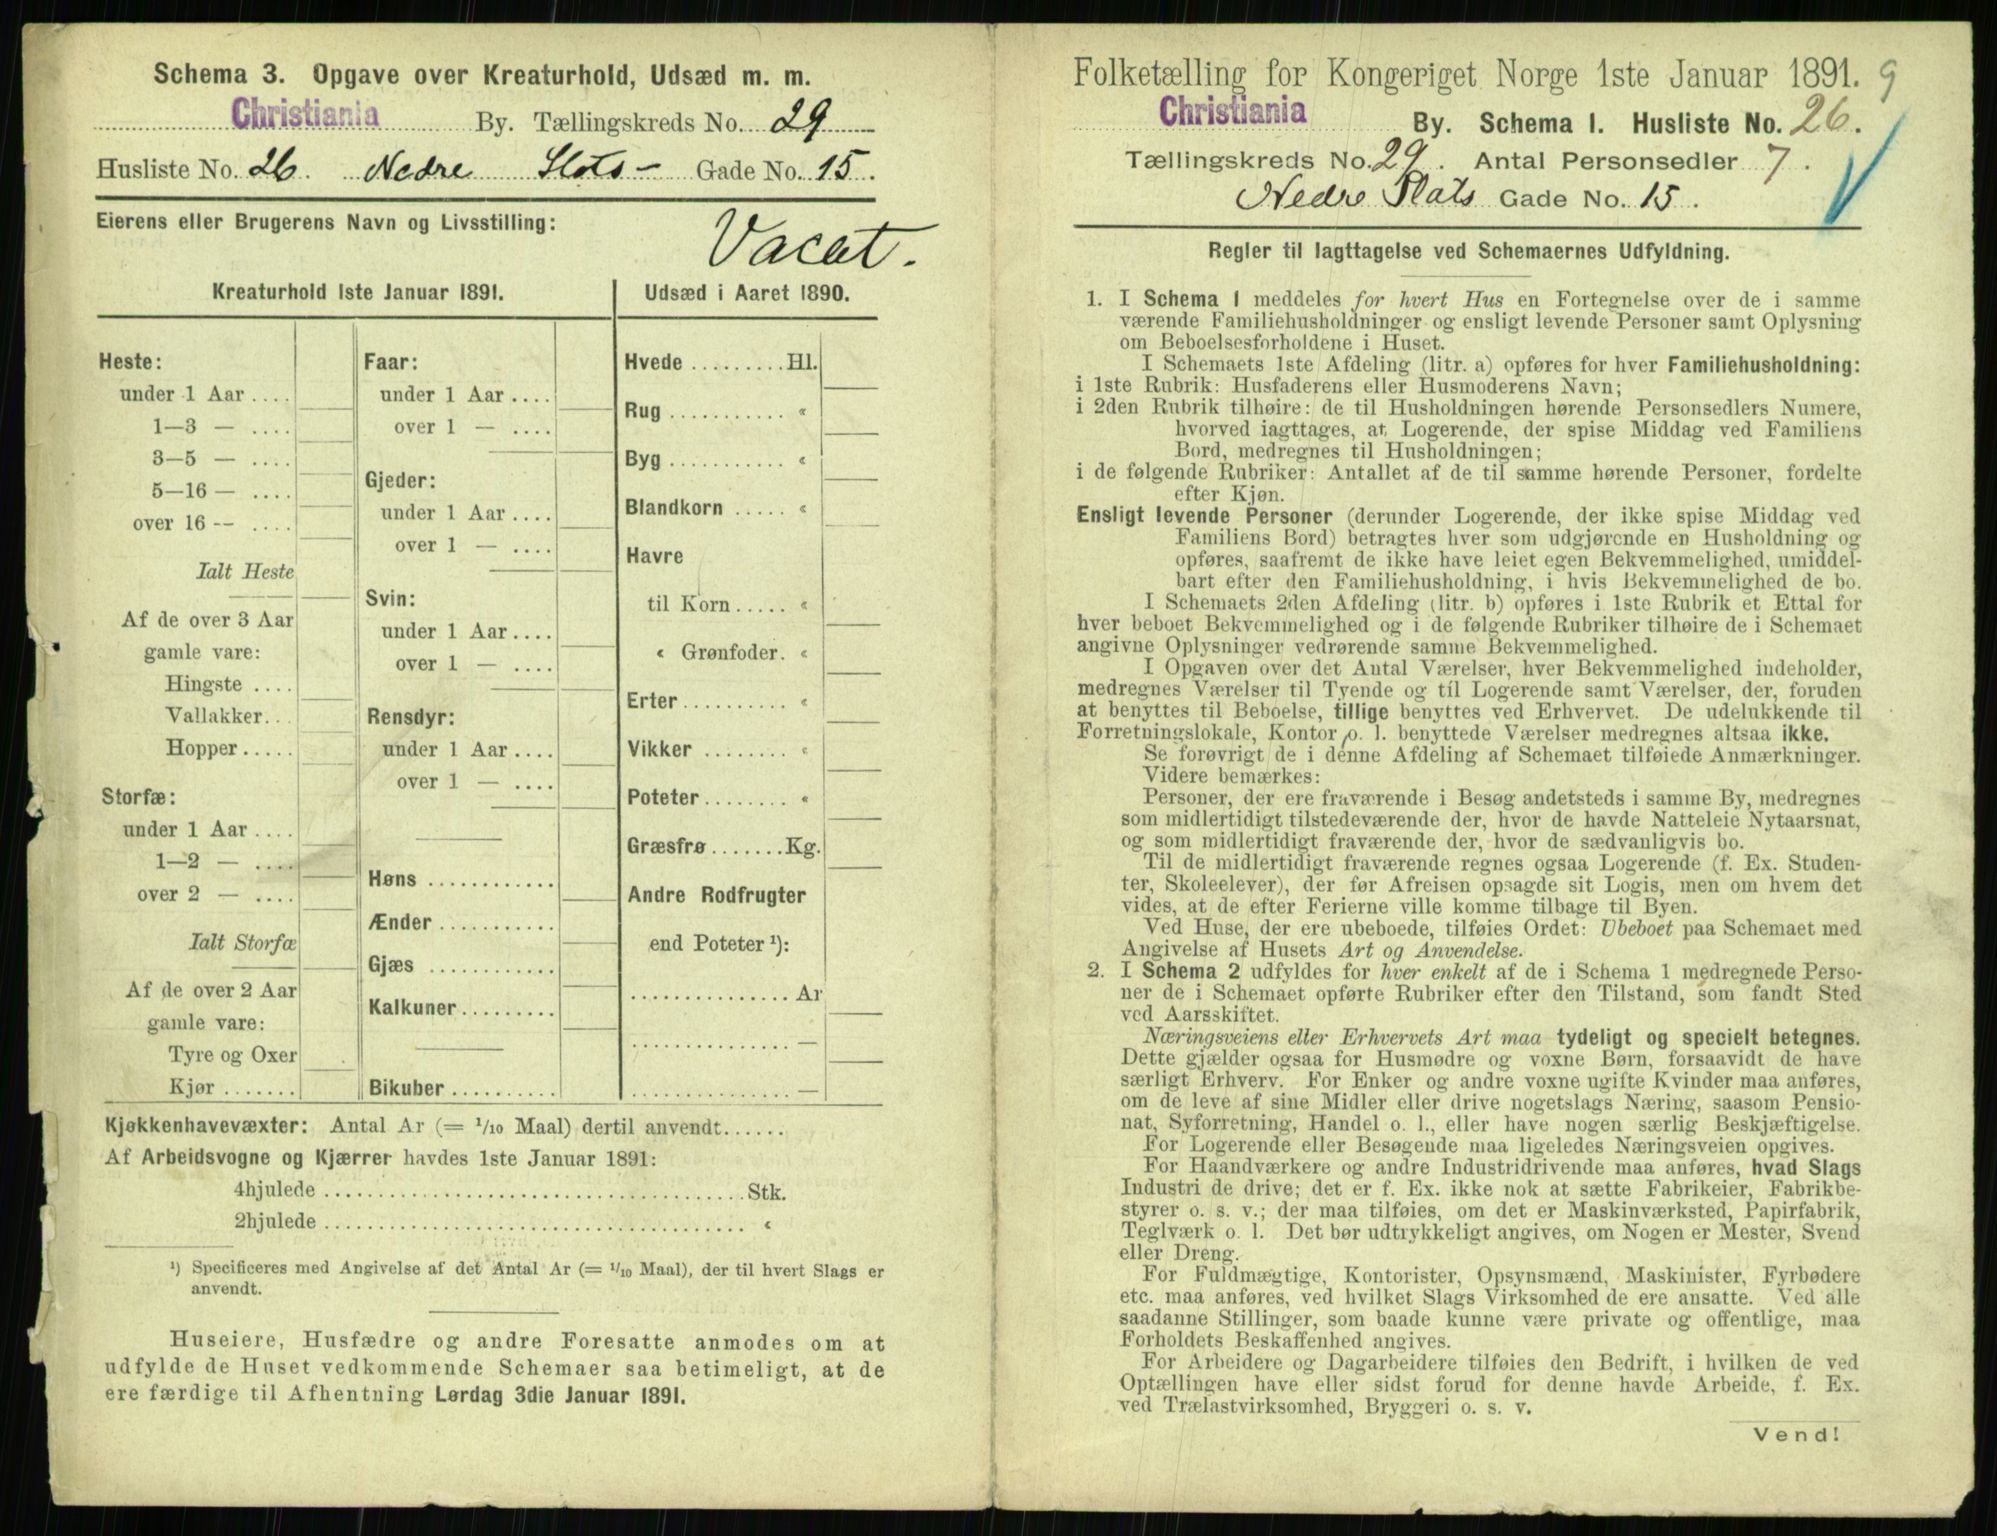 Schema 3. Opgave over Kreaturhold, Udsæd m. m.
Christiania By. Tællingskreds No. 29
Husliste No. 26. Nedre Slots- Gade No. 15.
Eierens eller Brugerens Navn og Livsstilling:
Vacat.
Kreaturhold 1ste Januar 1891.
Heste:
under 1 Aar ....
1—3 — ....
3—5 — ....
5—16 — ....
over 16 -- ....
Ialt Heste
Af de over 3 Aar
gamle vare:
Hingste ....
Vallakker...
Hopper.....
Storfæ:
under 1 Aar ....
1—2 — ....
over 2 — ....
Ialt Storfæ
Af de over 2 Aar
gamle vare:
Tyre og Oxer
Kjør .......
Faar:
under 1 Aar ....
over 1 — ....
Gjeder:
under 1 Aar ....
over 1 — ....
Svin:
under 1 Aar ....
over 1 — ....
Rensdyr:
under 1 Aar ....
over 1 — ....
Høns ............
Ænder ...........
Gjæs ............
Kalkuner.........
Bikuber ..........
Udsæd i Aaret 1890.
Hvede .........Hl.
Rug ........... «
Byg ........... «
Blandkorn ..... «
Havre
til Korn..... «
« Grønfoder. «
Erter.......... «
Vikker ........ «
Poteter........ «
Græsfrø.......Kg.
Andre Rodfrugter
end Poteter ¹):
............... Ar
............... —
............... —
Kjøkkenhavevæxter: Antal Ar (= 1/10 Maal) dertil anvendt......
Af Arbeidsvogne og Kjærrer havdes 1ste Januar 1891:
4hjulede ........................................Stk.
2hjulede ........................................ «
¹) Specificeres med Angivelse af det Antal Ar (= 1/10 Maal), der til hvert Slags er
anvendt.
Huseiere, Husfædre og andre Foresatte anmodes om at
udfylde de Huset vedkommende Schemaer saa betimeligt, at de
ere færdige til Afhentning Lørdag 3die Januar 1891.
Folketælling for Kongeriget Norge 1ste Januar 1891. 9
Christiania By. Schema 1. Husliste No. 26.
Tællingskreds No. 29. Antal Personsedler 7.
Nedre Slots Gade No. 15.
Regler til Iagttagelse ved Schemaernes Udfyldning.
1. I Schema 1 meddeles for hvert Hus en Fortegnelse over de i samme
værende Familiehusholdninger og ensligt levende Personer samt Oplysning
om Beboelsesforholdene i Huset.
I Schemaets 1ste Afdeling (litr. a) opføres for hver Familiehusholdning:
i 1ste Rubrik: Husfaderens eller Husmoderens Navn;
i 2den Rubrik tilhøire: de til Husholdningen hørende Personsedlers Numere,
hvorved iagttages, at Logerende, der spise Middag ved Familiens
Bord, medregnes til Husholdningen;
i de følgende Rubriker: Antallet af de til samme hørende Personer, fordelte
efter Kjøn.
Ensligt levende Personer (derunder Logerende, der ikke spise Middag ved
Familiens Bord) betragtes hver som udgjørende en Husholdning og
opføres, saafremt de ikke have leiet egen Bekvemmelighed, umiddel-
bart efter den Familiehusholdning, i hvis Bekvemmelighed de bo.
I Schemaets 2den Afdeling (litr. b) opføres i 1ste Rubrik et Ettal for
hver beboet Bekvemmelighed og i de følgende Rubriker tilhøire de i Schemaet
angivne Oplysninger vedrørende samme Bekvemmelighed.
I Opgaven over det Antal Værelser, hver Bekvemmelighed indeholder,
medregnes Værelser til Tyende og til Logerende samt Værelser, der, foruden
at benyttes til Beboelse, tillige benyttes ved Erhvervet. De udelukkende til
Forretningslokale, Kontor o. l. benyttede Værelser medregnes altsaa ikke.
Se forøvrigt de i denne Afdeling af Schemaet tilføiede Anmærkninger.
Videre bemærkes:
Personer, der ere fraværende i Besøg andetsteds i samme By, medregnes
som midlertidigt tilstedeværende der, hvor de havde Natteleie Nytaarsnat,
og som midlertidigt fraværende der, hvor de sædvanligvis bo.
Til de midlertidigt fraværende regnes ogsaa Logerende (f. Ex. Studen-
ter, Skoleelever), der før Afreisen opsagde sit Logis, men om hvem det
vides, at de efter Ferierne ville komme tilbage til Byen.
Ved Huse, der ere ubeboede, tilføies Ordet: Ubeboet paa Schemaet med
Angivelse af Husets Art og Anvendelse.
2. I Schema 2 udfyldes for hver enkelt af de i Schema 1 medregnede Perso-
ner de i Schemaet opførte Rubriker efter den Tilstand, som fandt Sted
ved Aarsskiftet.
Næringsveiens eller Erhvervets Art maa tydeligt og specielt betegnes.
Dette gjælder ogsaa for Husmødre og voxne Børn, forsaavidt de have
særligt Erhverv. For Enker og andre voxne ugifte Kvinder maa anføres,
om de leve af sine Midler eller drive nogetslags Næring, saasom Pensio-
nat, Syforretning, Handel o. l., eller have nogen særlig Beskjæftigelse.
For Logerende eller Besøgende maa ligeledes Næringsveien opgives.
For Haandværkere og andre Industridrivende maa anføres, hvad Slags
Industri de drive; det er f. Ex. ikke nok at sætte Fabrikeier, Fabrikbe-
styrer o. s. v.; der maa tilføies, om det er Maskinværksted, Papirfabrik,
Teglværk o. l. Det bør udtrykkeligt angives, om Nogen er Mester, Svend
eller Dreng.
For Fuldmægtige, Kontorister, Opsynsmænd, Maskinister, Fyrbødere
etc. maa anføres, ved hvilket Slags Virksomhed de ere ansatte. Ved alle
saadanne Stillinger, som baade kunne være private og offentlige, maa
Forholdets Beskaffenhed angives.
For Arbeidere og Dagarbeidere tilføies den Bedrift, i hvilken de ved
Optællingen have eller sidst forud for denne havde Arbeide, f. Ex.
ved Trælastvirksomhed, Bryggeri o. s. v.
Vend!